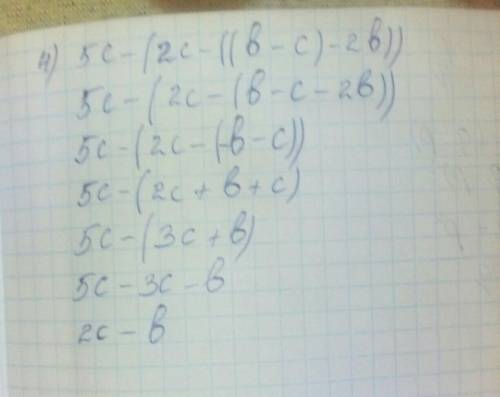 4) 5c-(2c-((b-c)-2b))
5c-(2c-(b-c-2b))
5c-(2c-(-b-c))
5c-(2c+b+c)
5c-(3c+b)
5c-3c-b
2c-b